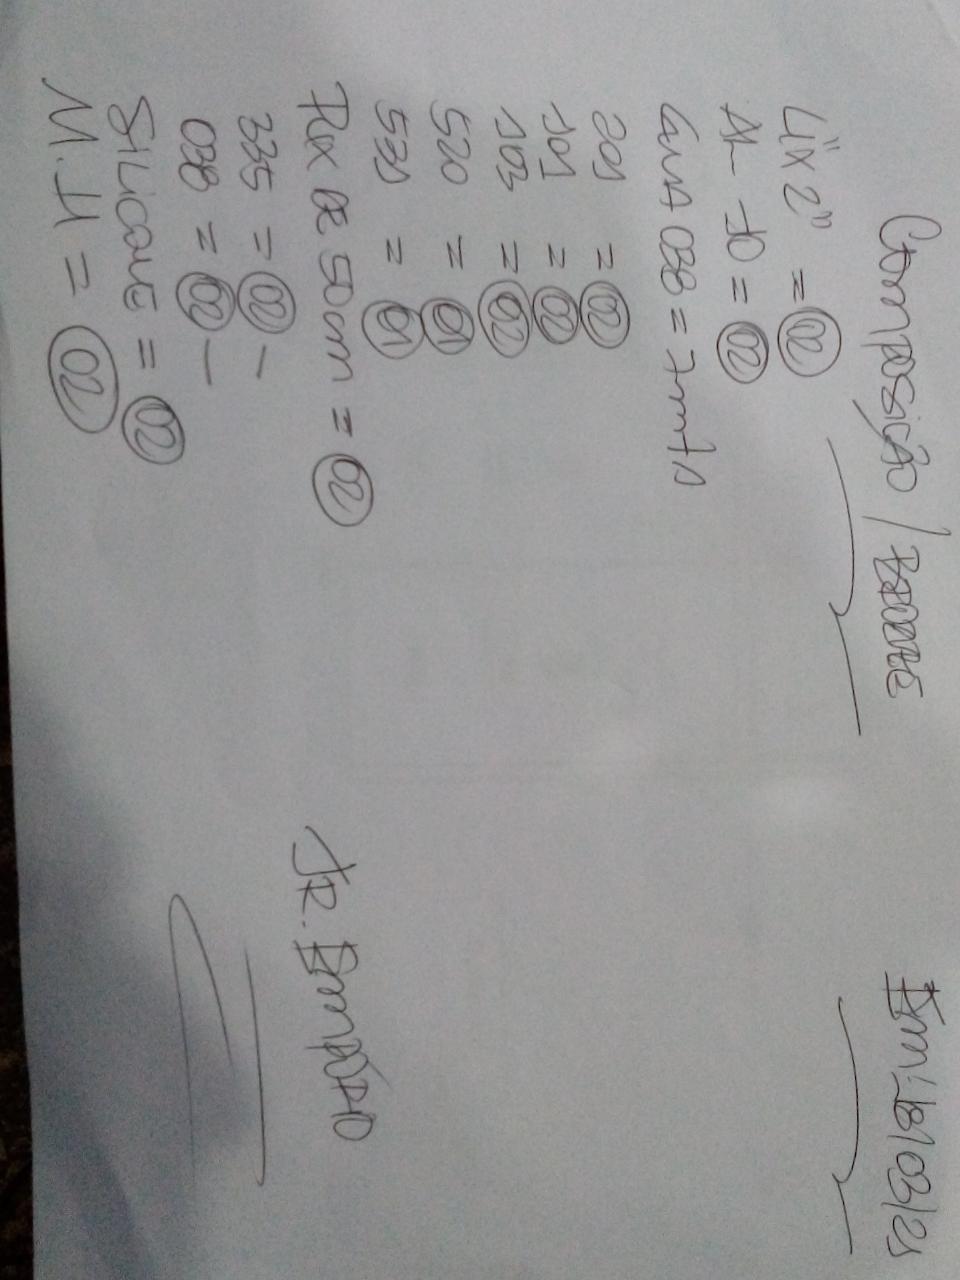 Composição /
Em: 18/03/21
Lix 2" = 02
AL-10 = 02
038 = 7mt
201 = 02
101 = 02
103 = 02
520 = 01
531 = 01
DE 50cm = 02
335 = 02 -
038 = 02 -
SiLicone = 02
M.H = 02
JR.